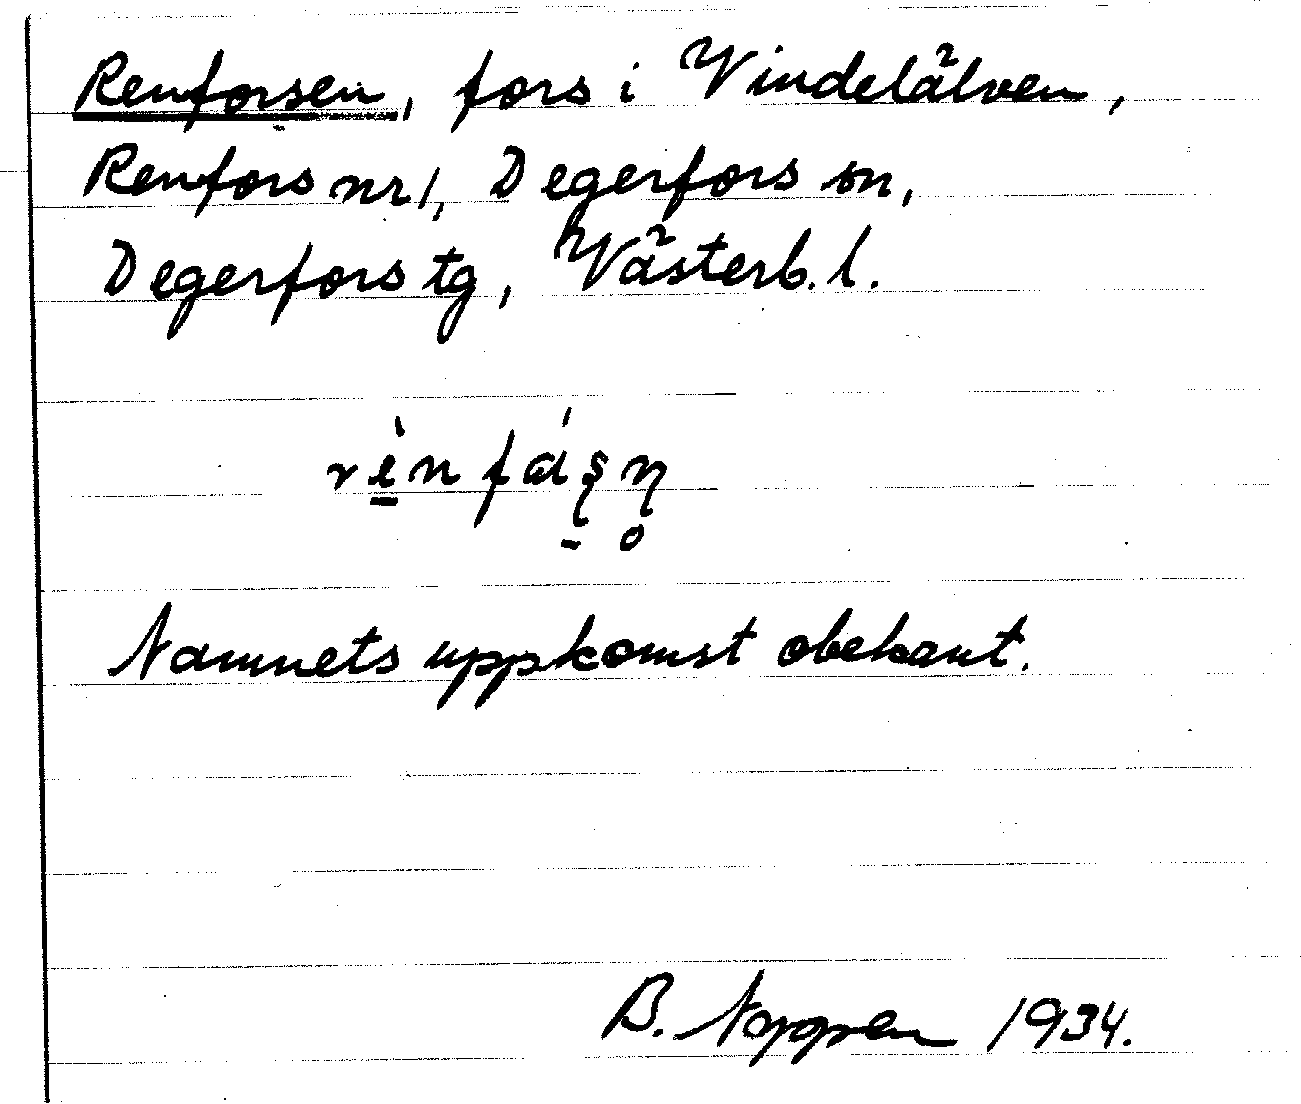 Renforsen, fors i Vindelälven,
Renfors nr 1, Degerfors sn,
Degerfors tg, Västerb. l.
Namnets uppkomst obekant.
B. Noppen 1934.